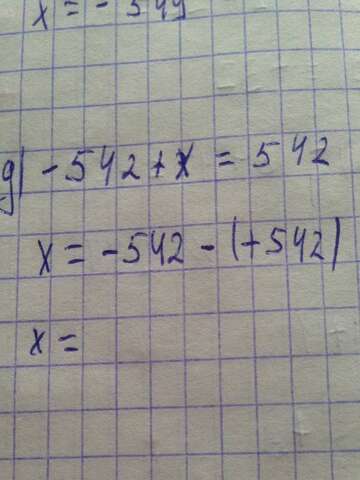 x = - 549
g) - 542 + x = 542
x = - 542 - (+ 542)
x =